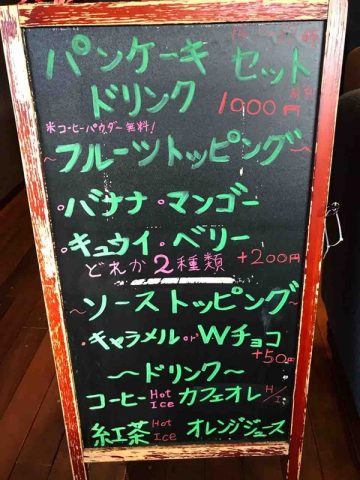 パンケーキ セット
ドリンク 1000円
※コーヒーパウダー無料!
~フルーツトッピング~
・バナナ ・マンゴー
・キュウイ ・ベリー
どれか2種類 +200円
~ソーストッピング~
・キャラメル or Wチョコ
+50円
~ドリンク~
コーヒー Hot Ice カフェオレ H/I
紅茶 Hot Ice オレンジジュース